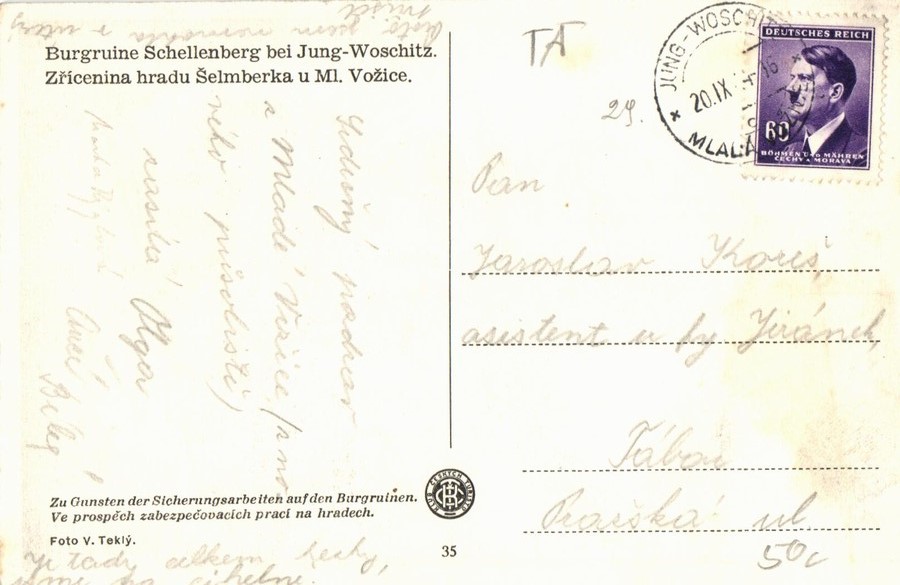 Burgruine Schellenberg bei Jung-Woschitz.
Zřícenina hradu Šelmberka u Ml. Vožice.
Srdečný pozdrav
z Mladé Vožice (z no
vého působiště)
zasílá Olga
Zu Gunsten der Sicherungsarbeiten auf den Burgruinen.
Ve prospěch zabezpečovacích prací na hradech.
Foto V. Teklý.
Je tady celkem hezky,
KLUB ČESKÝCH TURISTŮ
35
TA
29.
JUNG-WOSCHITZ
20.IX
DEUTSCHES REICH
60
BÖHMEN U. MÄHREN
ČECHY A MORAVA
Pan
Jaroslav Koreš,
asistent u fy Jiránek,
Tábor
Pražská ul.
50c